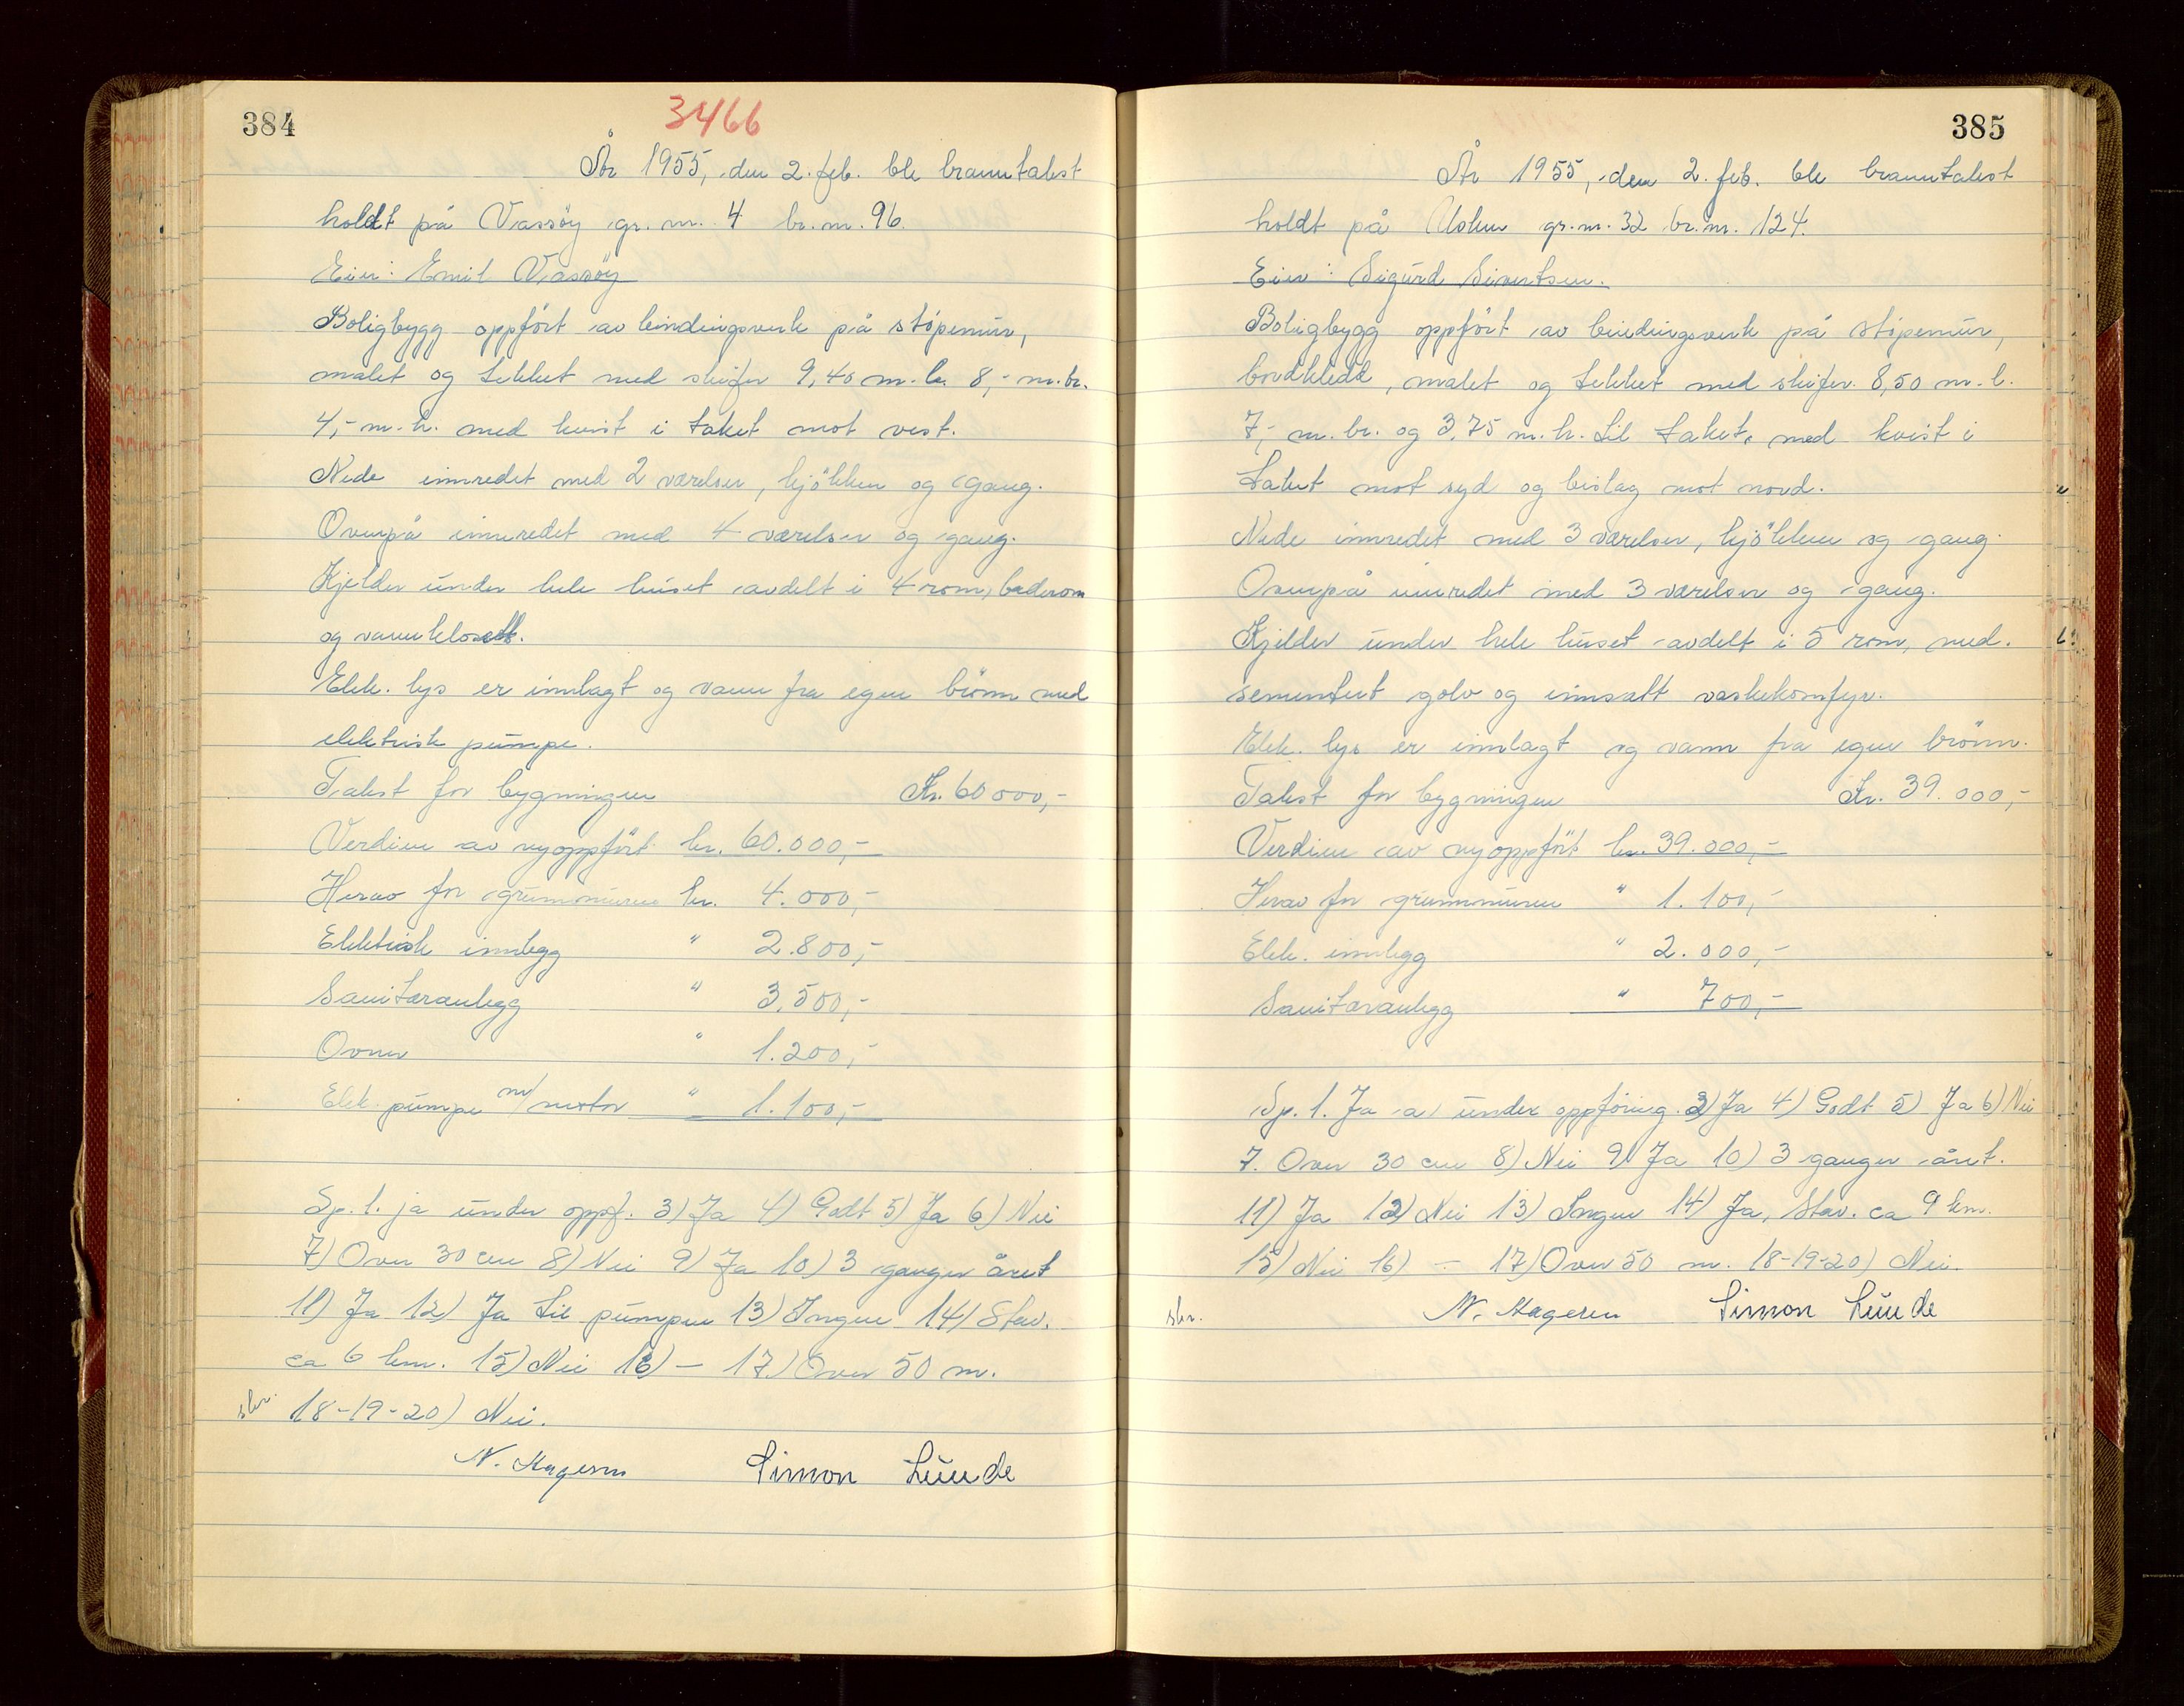 384
3466
År 1955, den 2. feb. ble branntakst
holdt på Vassöy gr. nr. 4 br. nr. 96.
Eier: Emil Vassöy
Boligbygg oppfört av bindingsverk på stöpemur,
malet og tekket med skifer 9,40 m. l. 8,- m. br.
4,- m. h. med kvist i taket mot vest.
Nede innredet med 2 værelser, kjökken og gang.
Ovenpå innredet med 4 værelser og gang.
Kjelder under hele huset avdelt i 4 rom, baderom
og vannklosett.
Elek. lys er innlagt og vann fra egen brönn med
elektrisk pumpe.
Takst for bygningen Kr. 60 000,-
Verdien av nyoppfört kr. 60.000,-
Herav for grunnmuren kr. 4.000,-
Elektrisk innlegg " 2.800,-
Sanitæranlegg " 3.500,-
Ovner " 1.200,-
Elek. pumpe m/motor " 1.100,-
Sp. 1. ja under oppf. 3) Ja 4) Godt 5) Ja 6) Nei
7) Over 30 cm 8) Nei 9) Ja 10) 3 ganger året
11) Ja 12) Ja til pumpen 13) Ingen 14) Stav.
ca 6 km. 15) Nei 16) — 17) Over 50 m.
skr. 18-19-20) Nei.
Simon Lunde
385
År 1955, den 2. feb. ble branntakst
holdt på gr. nr. 32 br. nr. 124.
Eier: Sigurd Sivertsen.
Boligbygg oppfört av bindingsverk på stöpemur,
bordkledd, malet og tekket med skifer. 8,50 m. l.
7,- m. br. og 3,75 m. h. til taket, med kvist i
taket mot syd og bislag mot nord.
Nede innredet med 3 værelser, kjökken og gang.
Ovenpå innredet med 3 værelser og gang.
Kjelder under hele huset avdelt i 5 rom, med.
sementert golv og innsatt vaskekomfyr.
Elek. lys er innlagt og vann fra egen brönn.
Takst for bygningen Kr. 39.000,-
Verdien av nyoppfört kr. 39.000,-
Herav for grunnmuren " 1.100,-
Elek. innlegg " 2.000,-
Sanitæranlegg " 700,-
Sp. 1. Ja a) under oppföring. 3) Ja 4) Godt 5) Ja 6) Nei
7. Over 30 cm 8) Nei 9) Ja 10) 3 ganger året.
11) Ja 12) Nei 13) Ingen 14) Ja, Stav. ca 9 km.
15) Nei 16) — 17) Over 50 m. 18-19-20) Nei.
skr. Simon Lunde